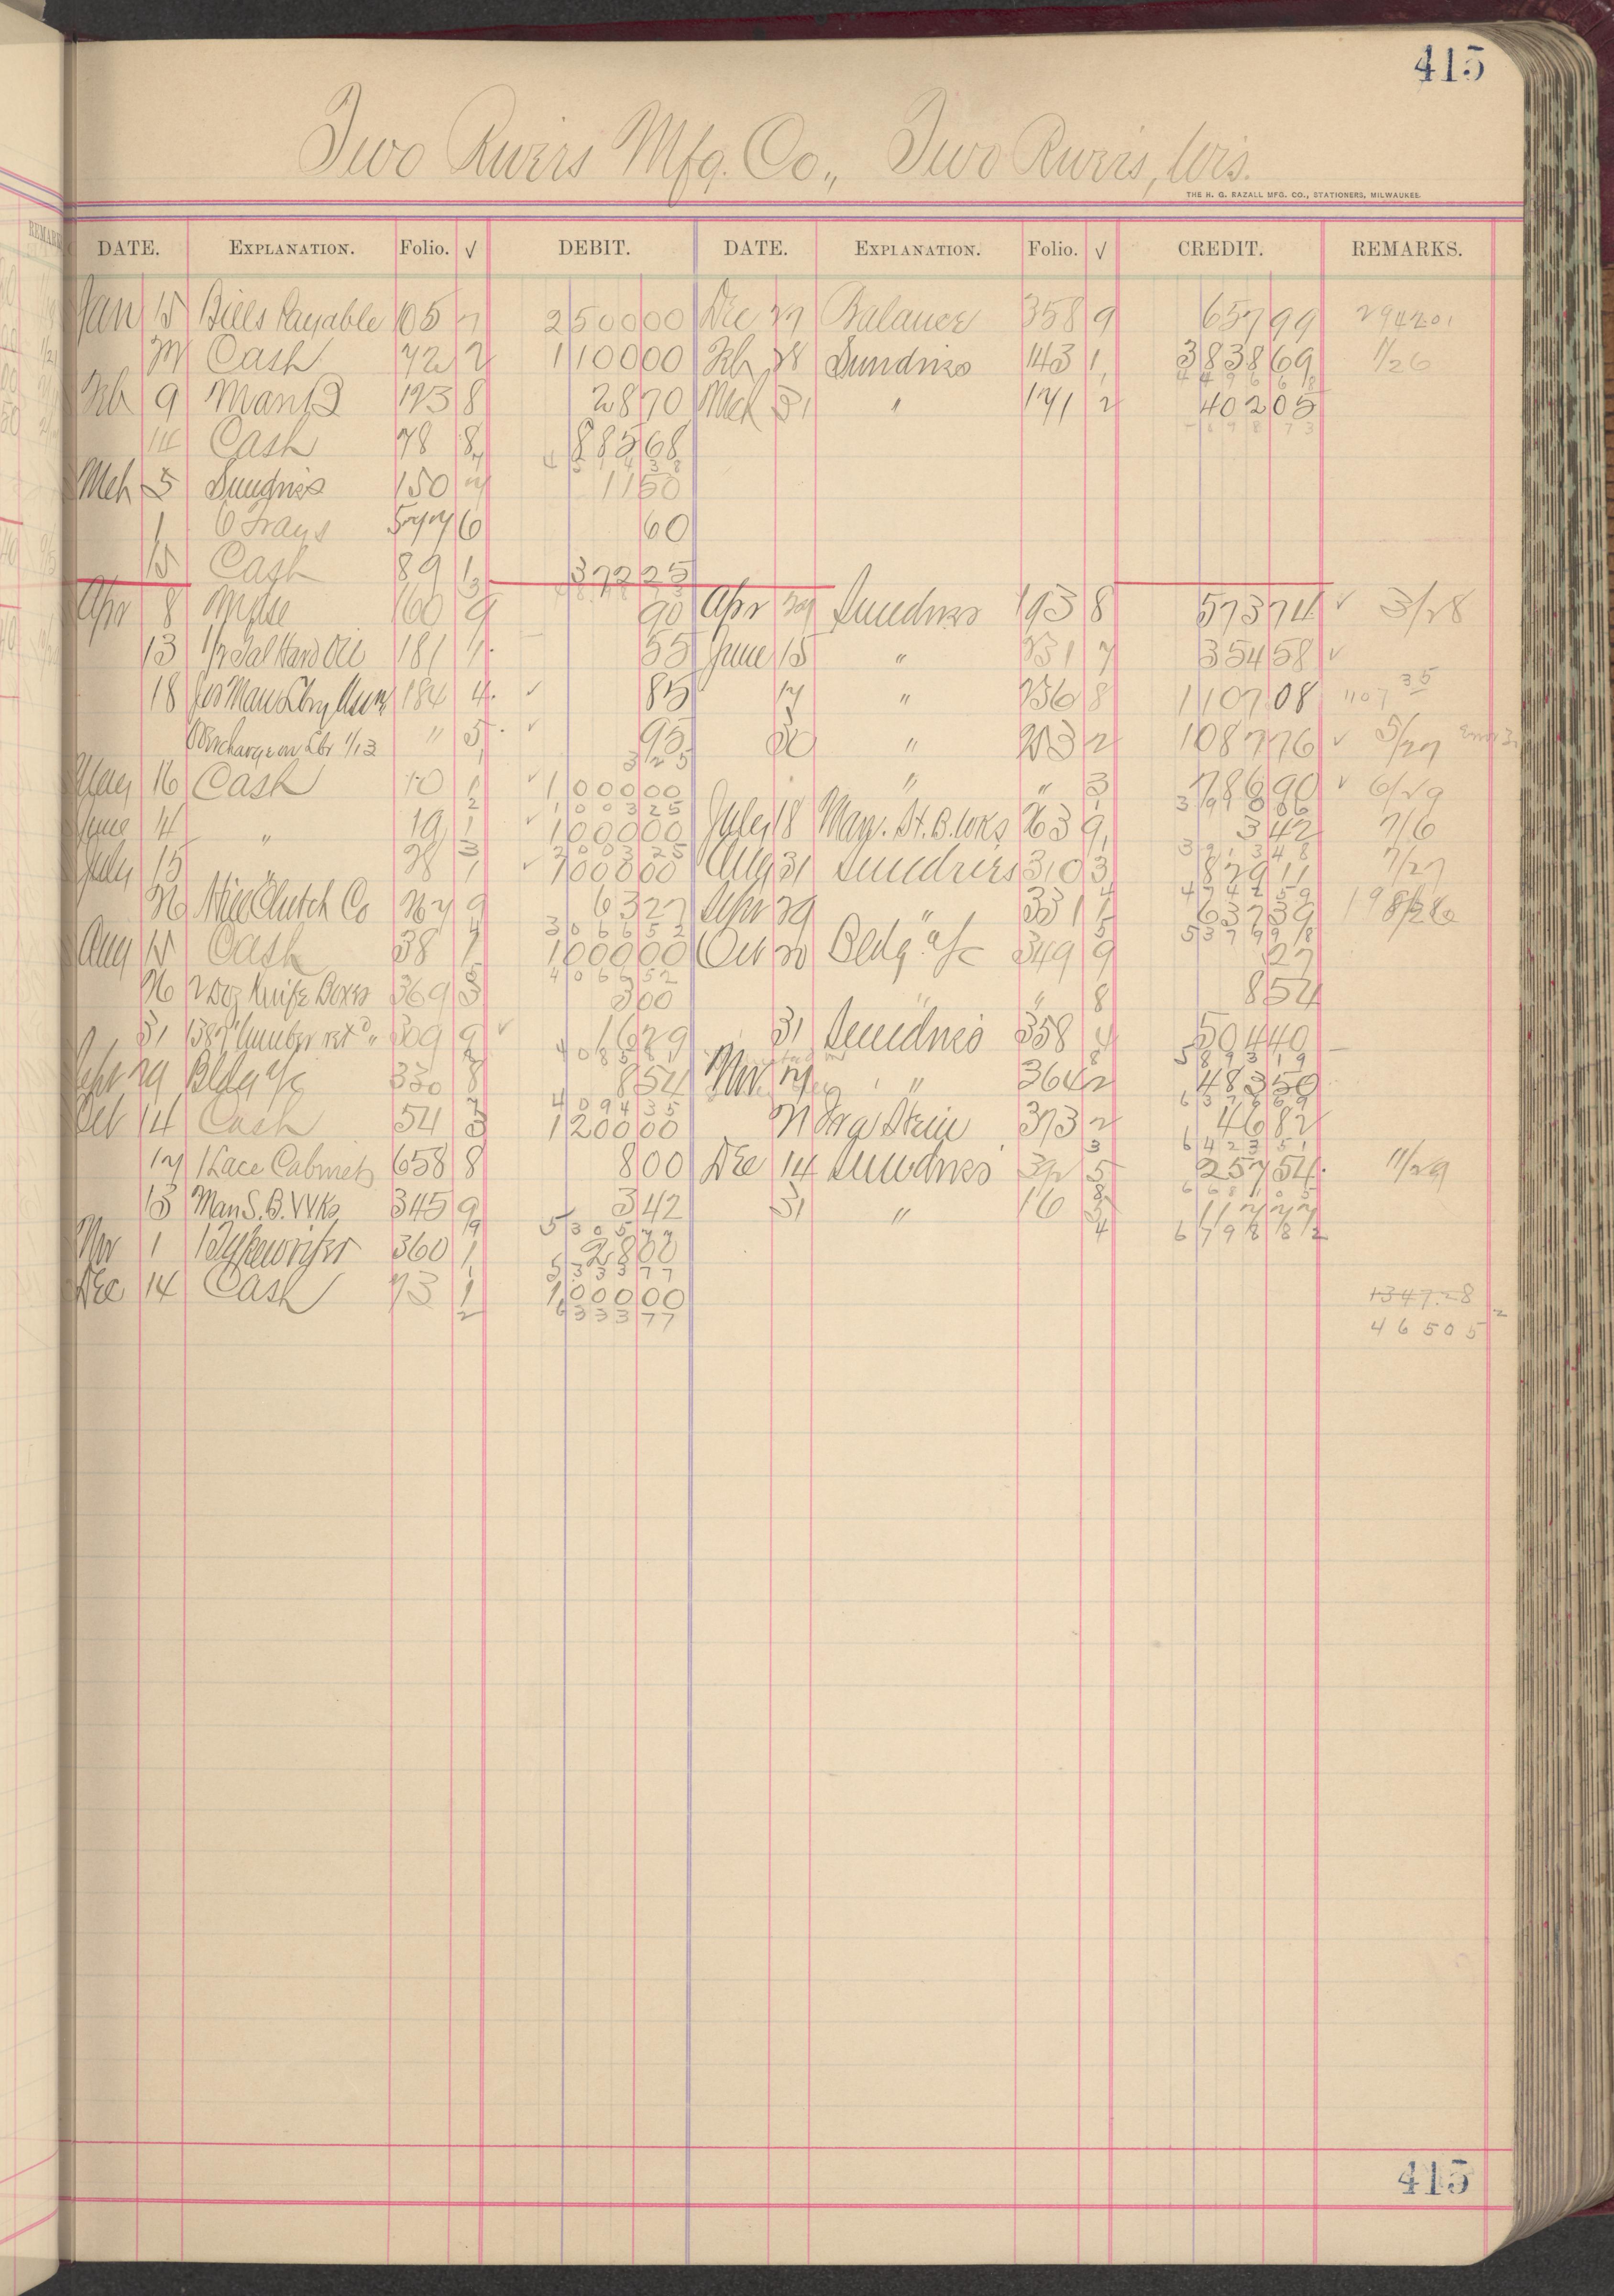 415
Two Rivers Mfg. Co., Two Rivers, Wis.
THE H. G. RAZALL MFG. CO., STATIONERS, MILWAUKEE.
DATE. EXPLANATION. Folio. √ DEBIT. DATE. EXPLANATION. Folio. √ CREDIT. REMARKS.
Jan 15 Bills Payable 105 7 2500 00 Dec 27 Balance 358 9 657 99 2942 01
Cash 72 2 1100 00 Feb 28 Sundries 143 1 3838 69 1/26
4496 68
Feb 9 193 8 28 70 Mch 31 " 171 2 402 05
4898 73
14 Cash 78 8 885 68
Mch 5 Sundries 150 11 50
1 6 Trays 577 6 60
15 Cash 89 1 372 25
Apr 8 Mdse 160 9 90 Apr Sundries 193 8 573 74 √ 3/28
13 1/2 Gal Hard Oil 181 1 55 June 15 " 231 7 354 58 √
18 184 4 √ 85 17 " 236 8 1107 08 1107 35
Overcharge on Lbr 1/13 " 5 √ 95 30 " 2 1087 76 √ 5/27
3 25
May 16 Cash 10 1 √ 1000 00 " " 3 786 90 √ 6/29
1003 25
June 14 " 19 1 √ 1000 00 July 18 Man. St. B. Wks 263 9 3 42 7/6
2003 25 3913 48
July 15 " 28 1 √ 1000 00 Aug 31 Sundries 310 3 829 11 7/27
26 Hill Clutch Co 267 9 63 27 Sept 29 " 331 637 39
3066 52
Aug 15 Cash 38 1 1000 00 Oct 20 Bldg a/c 349 9 27
4066 52
26 2 Doz Knife Boxes 369 3 3 00 " " 8 8 54
31 1387' lumber retd " 309 9 √ 16 29 31 Sundries 358 4 504 40
4085 81 5893 19
Sept 29 Bldg a/c 330 8 8 54 Nov " 364 2 483 50
4094 35 6376 69
Oct 14 Cash 54 3 1200 00 Ira Stein 373 2 46 82
6423 51
17 1 Lace Cabinet 658 8 8 00 Dec 14 Sundries 5 257 54 11/29
13 Man S. B. Wks 345 9 3 42 31 " 16 117 77
5305 77 6798 82
Nov 1 1 Typewriter 360 1 28 00
5333 77
Dec 14 Cash 73 1 1000 00 1347.28
6333 77 465 05
415